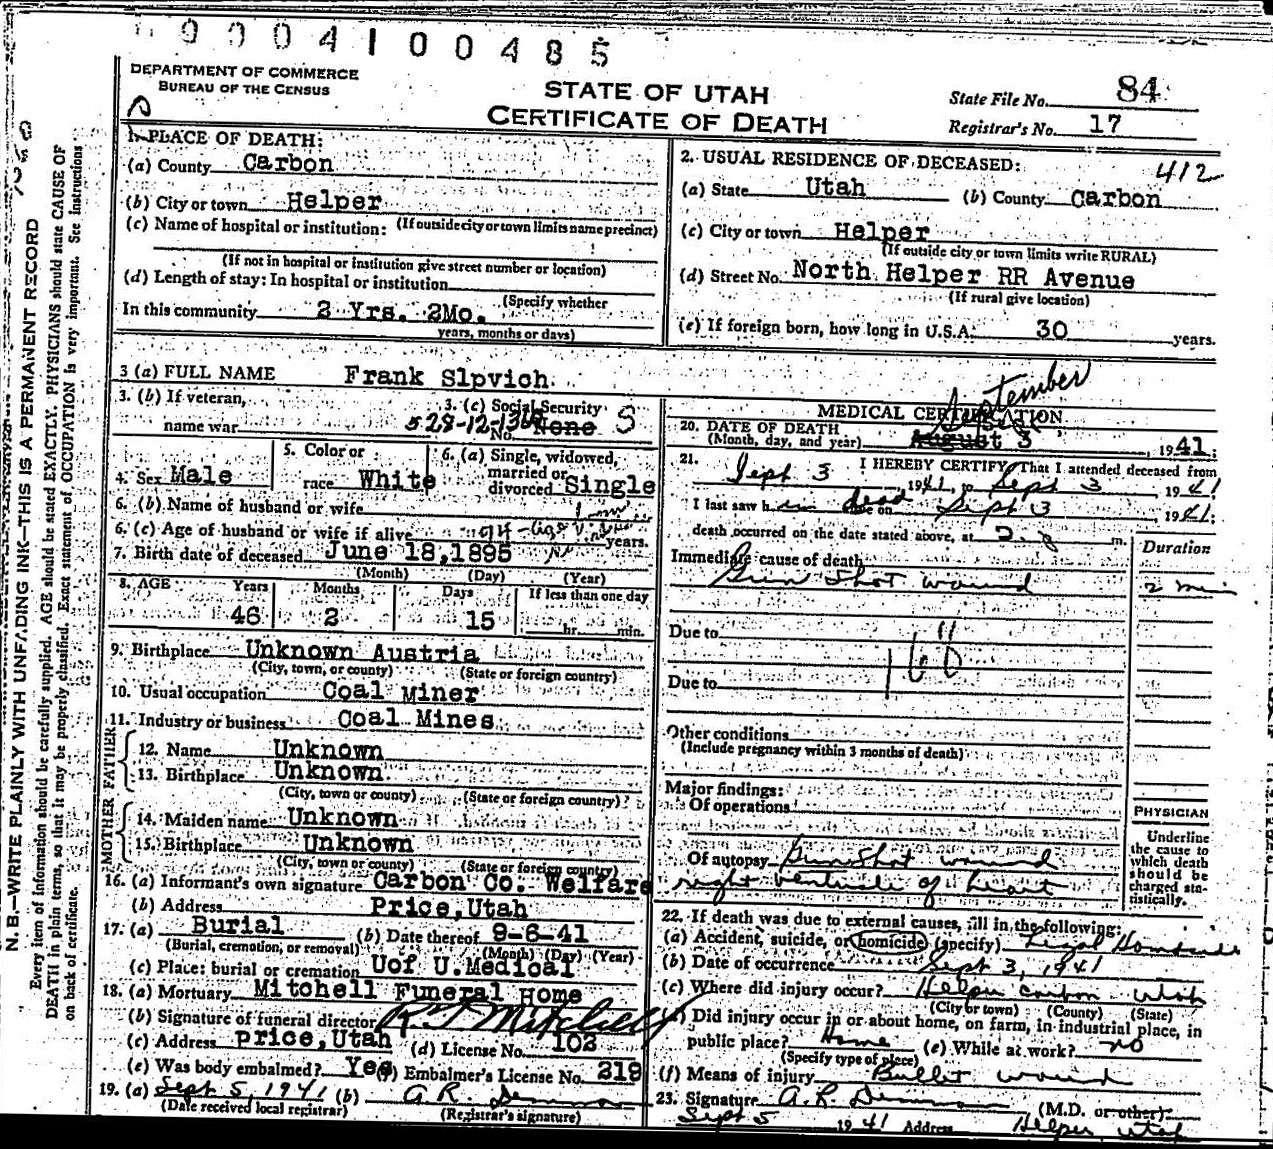 9004100485
DEPARTMENT OF COMMERCE
BUREAU OF THE CENSUS
STATE OF UTAH
CERTIFICATE OF DEATH
State File No. 84
Registrar's No. 17
N. B.—WRITE PLAINLY WITH UNFADING INK—THIS IS A PERMANENT RECORD
Every item of information should be carefully supplied. AGE should be stated EXACTLY. PHYSICIANS should state CAUSE OF
DEATH in plain terms, so that it may be properly classified. Exact statement of OCCUPATION is very important. See instructions
on back of certificate.
1. PLACE OF DEATH:
(a) County Carbon
(b) City or town Helper
(c) Name of hospital or institution: (If outside city or town limits name precinct)
(If not in hospital or institution give street number or location)
(d) Length of stay: In hospital or institution
(Specify whether
In this community 2 Yrs. 2Mo.
years, months or days)
2. USUAL RESIDENCE OF DECEASED: 412
(a) State Utah (b) County Carbon
(c) City or town Helper
(If outside city or town limits write RURAL)
(d) Street No. North Helper RR Avenue
(If rural give location)
(e) If foreign born, how long in U.S.A. 30 years.
3 (a) FULL NAME Frank Slpvich
3. (b) If veteran,
name war
3. (c) Social Security
No. None S
4. Sex Male
5. Color or
race White
6. (a) Single, widowed,
married or
divorced Single
6. (b) Name of husband or wife
6. (c) Age of husband or wife if alive years.
7. Birth date of deceased June 18,1895
(Month) (Day) (Year)
8. AGE Years Months Days If less than one day
46 2 15 hr. min.
9. Birthplace Unknown Austria
(City, town, or county) (State or foreign country)
10. Usual occupation Coal Miner
11. Industry or business Coal Mines
FATHER
12. Name Unknown
13. Birthplace Unknown
(City, town or county) (State or foreign country)
MOTHER
14. Maiden name Unknown
15. Birthplace Unknown
(City, town or county) (State or foreign country)
16. (a) Informant's own signature Carbon Co. Welfare
(b) Address Price,Utah
17. (a) Burial (b) Date thereof 9-6-41
(Burial, cremation, or removal) (Month) (Day) (Year)
(c) Place: burial or cremation Uof U.Medical
18. (a) Mortuary Mitchell Funeral Home
(b) Signature of funeral director R T Mitchell
(c) Address Price,Utah (d) License No. 102
(e) Was body embalmed? Yes (f) Embalmer's License No. 219
19. (a) Sept 5, 1941 (b) A. R. Demman
(Date received local registrar) (Registrar's signature)
September
MEDICAL CERTIFICATION
20. DATE OF DEATH
(Month, day, and year) August 3, 1941.
21. I HEREBY CERTIFY, That I attended deceased from
Sept 3 1941 to Sept 3 1941
I last saw him dead on Sept 3 1941.
death occurred on the date stated above, at m.
Immediate cause of death Duration
Gun Shot wound 2 min
Due to
Due to
Other conditions
(Include pregnancy within 3 months of death)
Major findings:
Of operations
Of autopsy Gun Shot wound
right ventricle of heart
PHYSICIAN
Underline
the cause to
which death
should be
charged sta-
tistically.
22. If death was due to external causes, fill in the following:
(a) Accident, suicide, or homicide (specify) Legal Homicide
(b) Date of occurrence Sept 3, 1941
(c) Where did injury occur? Helper Carbon Utah
(City or town) (County) (State)
(d) Did injury occur in or about home, on farm, in industrial place, in
public place? Home (e) While at work? no
(Specify type of place)
(f) Means of injury Bullet wound
23. Signature A. R. Demman (M.D. or other)
Sept 5 1941 Address Helper Utah